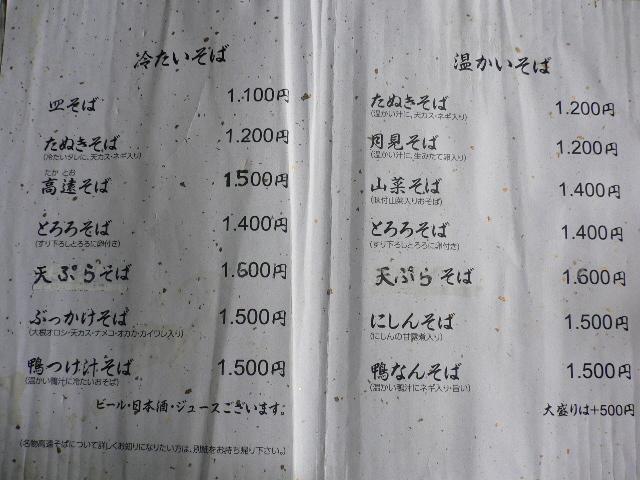 冷たいそば
皿そば 1.100円
たぬきそば 1.200円
(冷たいタレに、天カス・ネギ入り)
たか とお
高遠そば 1.500円
とろろそば 1.400円
(すり下ろしとろろに卵付き)
天ぷらそば 1.600円
ぶっかけそば 1.500円
(大根オロシ・天カス・ナメコ・オカカ・カイワレ入り)
鴨つけ汁そば 1.500円
(温かい鴨汁に冷たいおそば)
ビール・日本酒・ジュースございます。
(名物高遠そばについて詳しくお知りになりたい方は、別紙をお持ち帰り下さい。)
温かいそば
たぬきそば 1.200円
(温かい汁に、天カス・ネギ入り)
月見そば 1.200円
(温かい汁に、生みたて卵入り)
山菜そば 1.400円
(味付山菜入りおそば)
とろろそば 1.400円
(すり下ろしとろろに卵付き)
天ぷらそば 1.600円
にしんそば 1.500円
(にしんの甘露煮入り)
鴨なんそば 1.500円
(温かい鴨汁にネギ入り・旨い)
大盛りは+500円